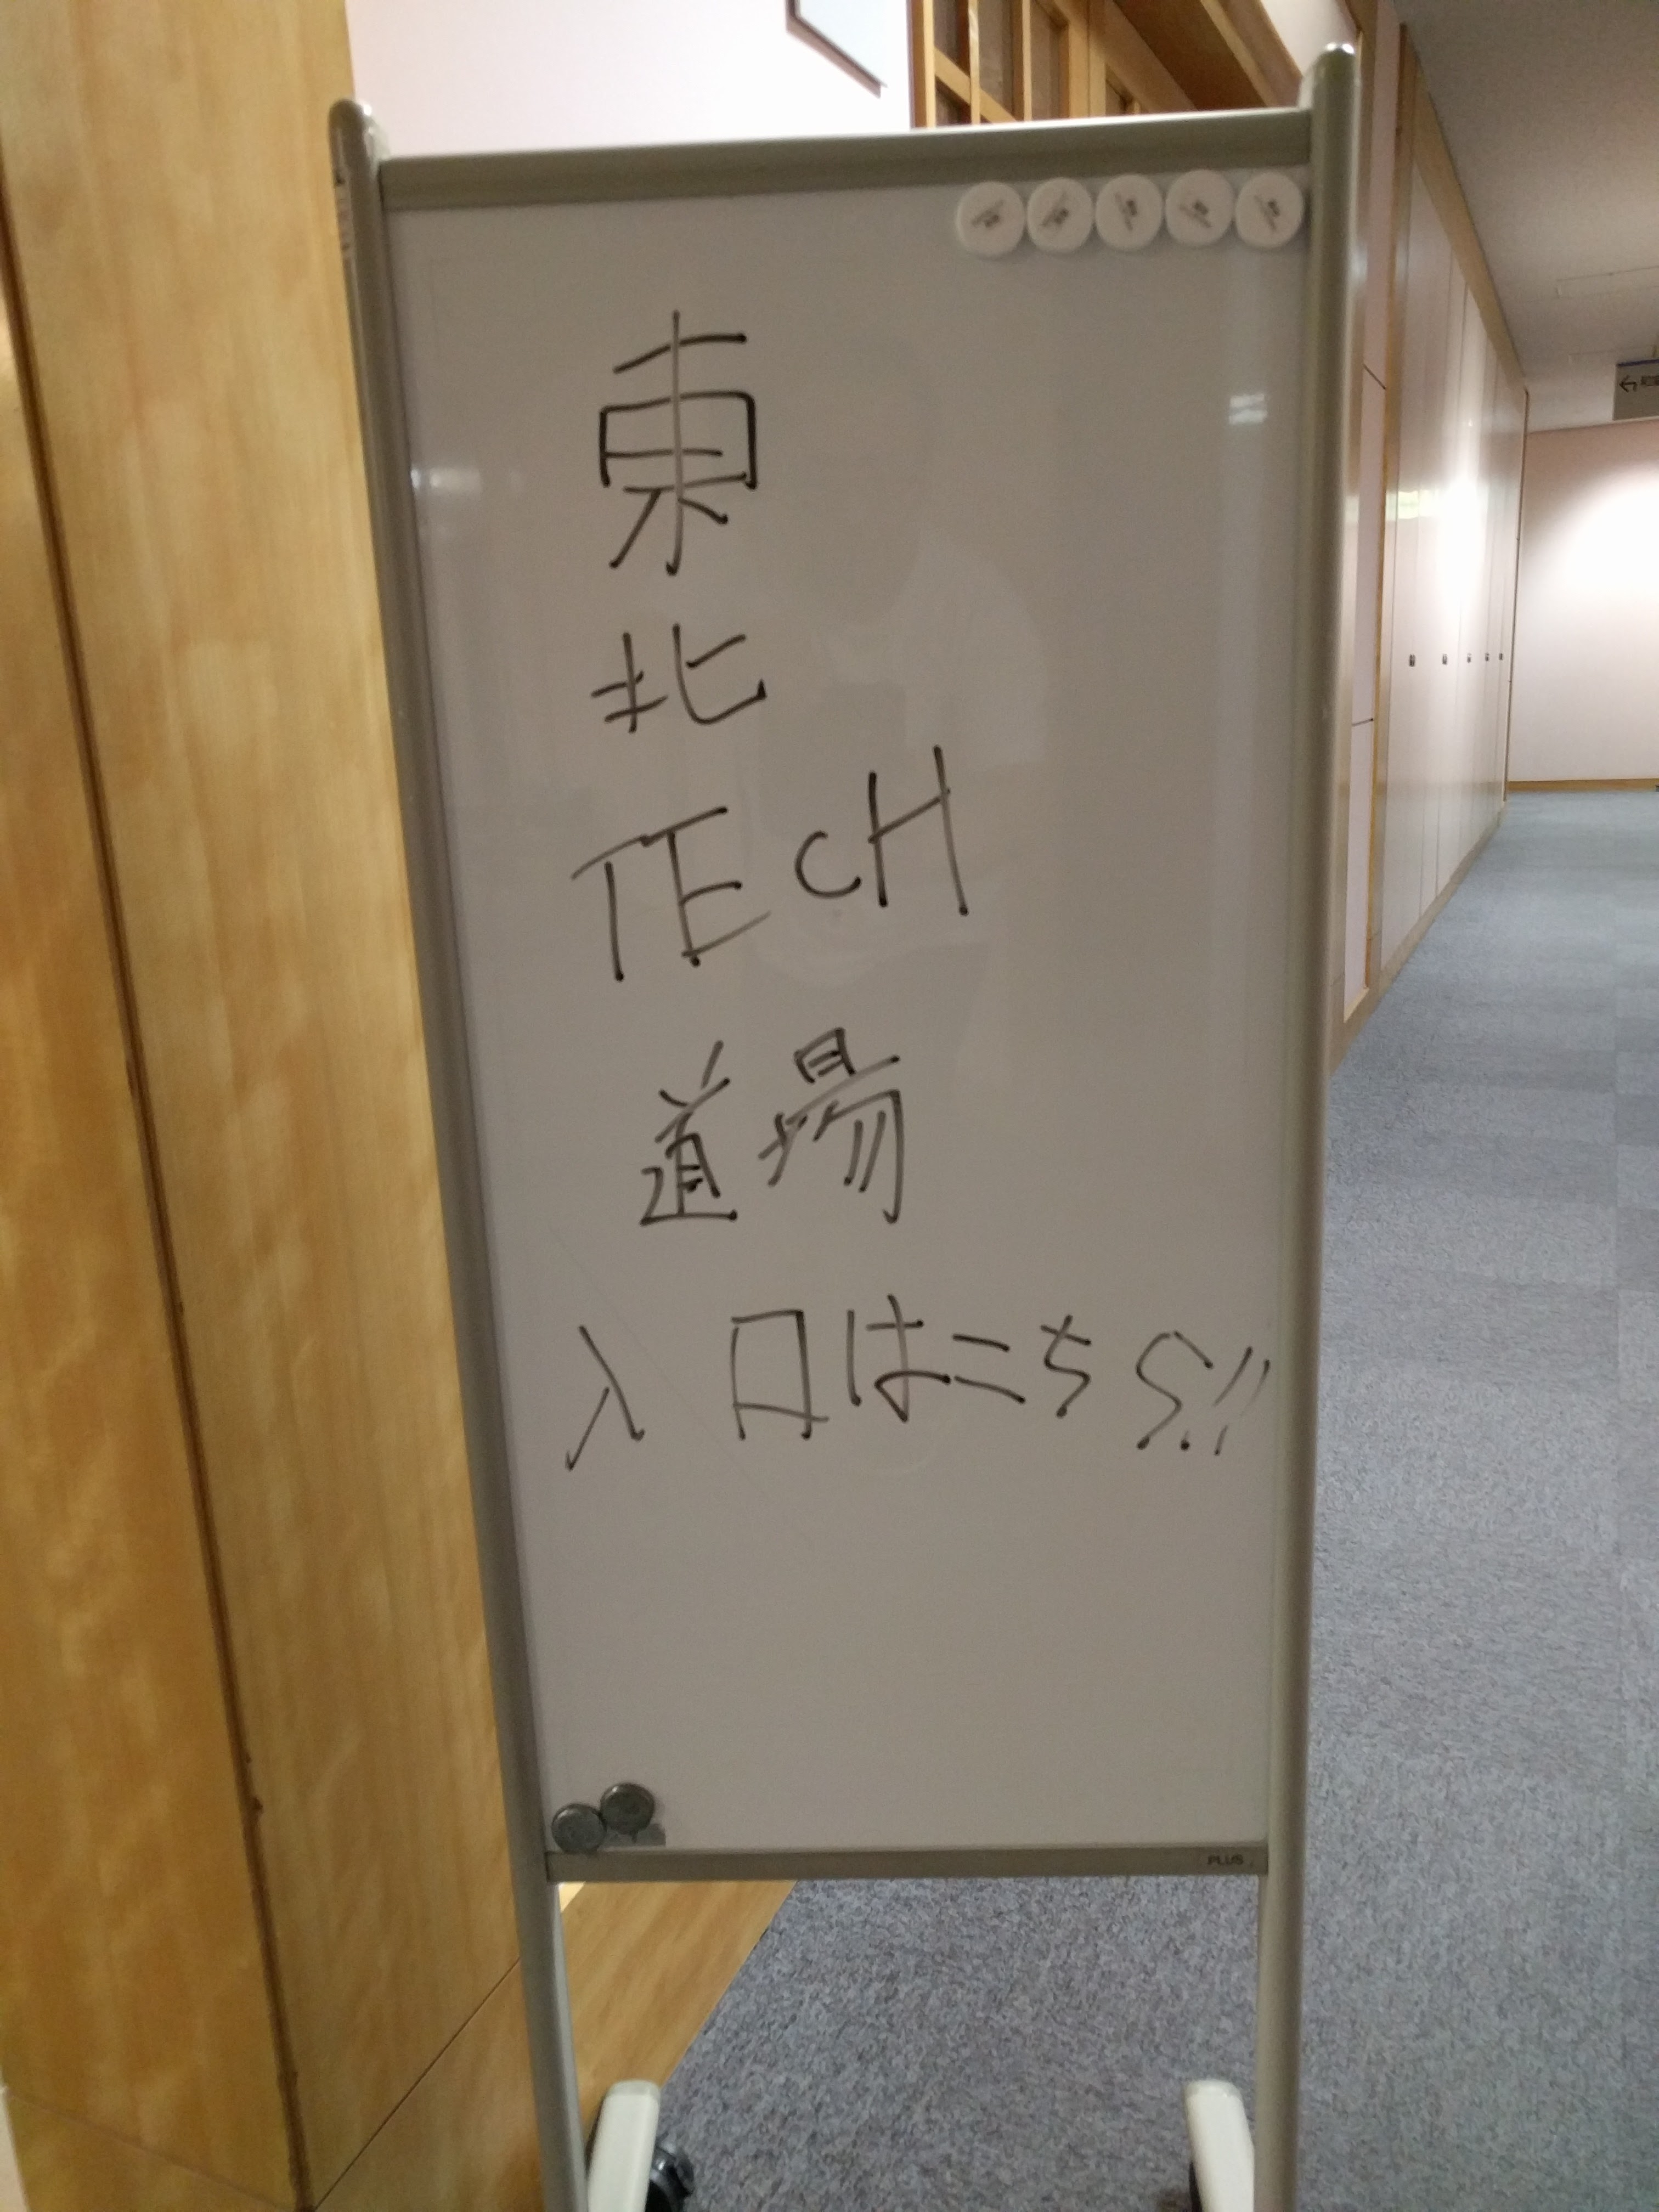 東
北
TEcH
道場
入口はこちら!!
PLUS